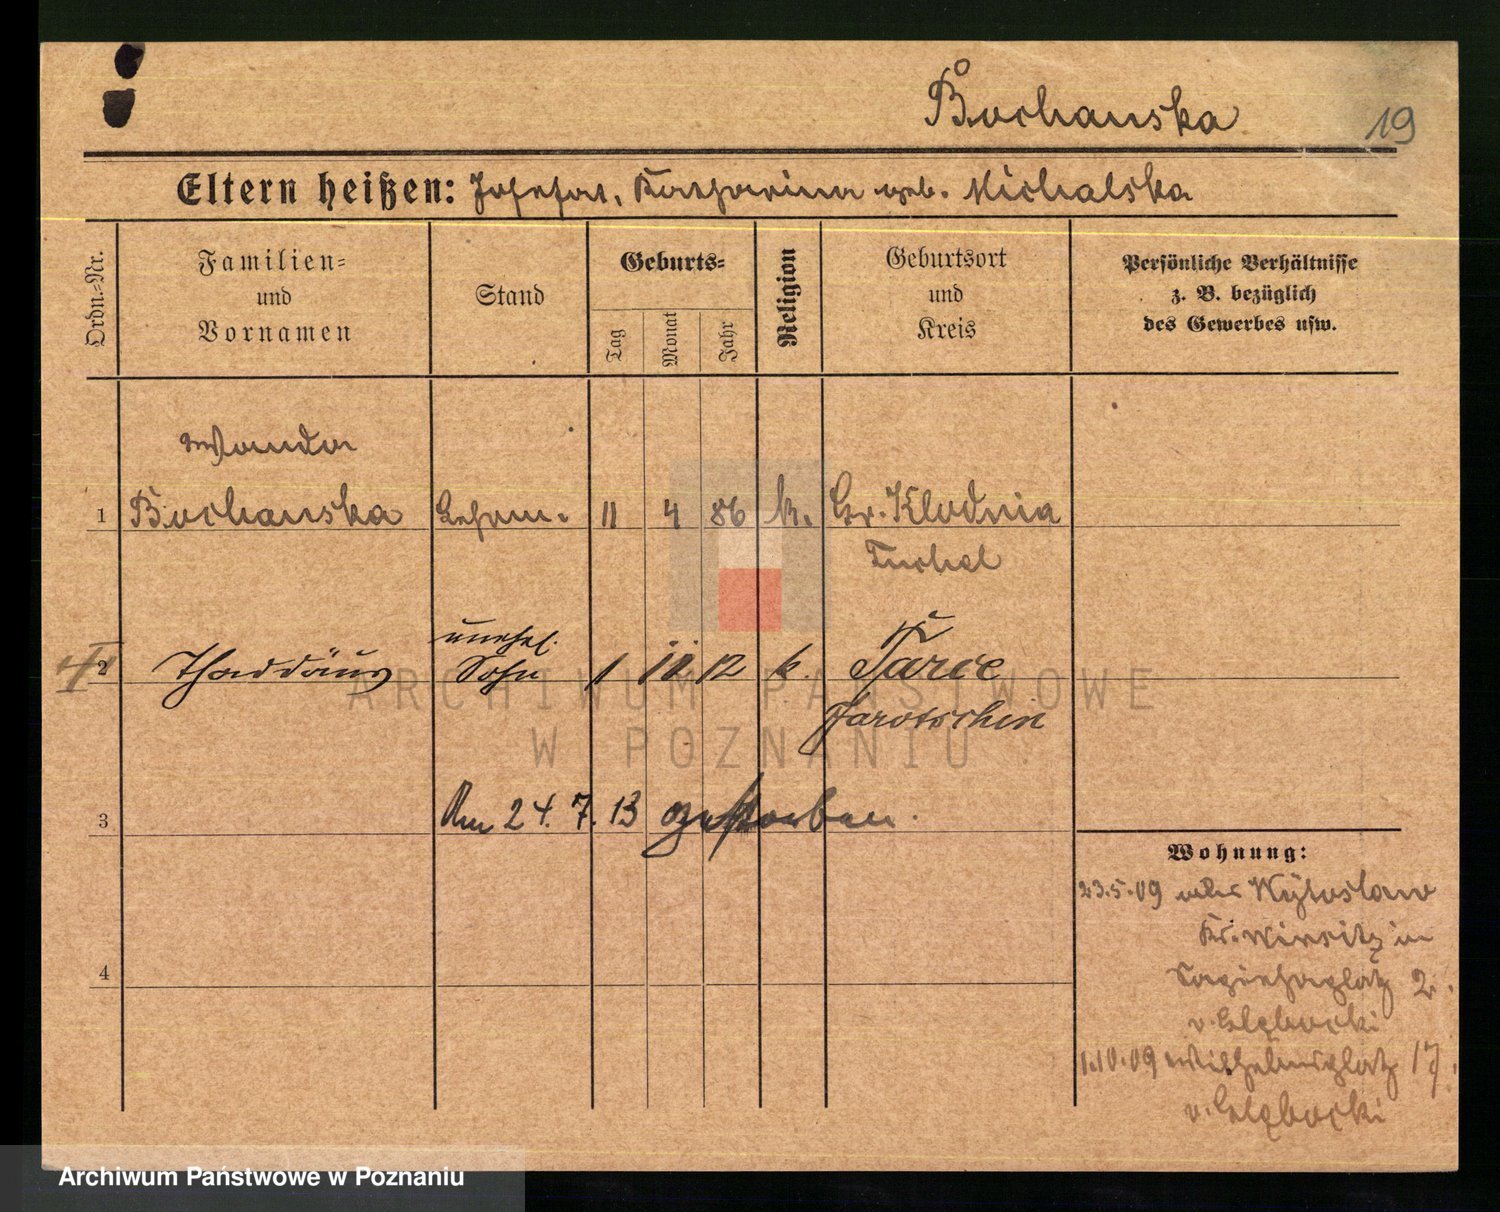 Bochanska
19
Eltern heißen: Josefat, Katharina geb. Michalska
Ordn.-Nr.
Familien-
und
Vornamen
Stand
Geburts-
Tag
Monat
Jahr
Religion
Geburtsort
und
Kreis
Persönliche Verhältnisse
z. B. bezüglich
des Gewerbes usw.
Wanda
1 Bochanska 11 4 86 k. Gr. Klodnia
Tuchel
unehel.
2 Thaddäus Sohn 1 10 12 k. Tarce
Jarotschin
3 Am 24.7.13 gestorben.
4
Wohnung:
23.5.09
Kr. Wirsitz in
Sapiehaplatz 2.
v.
1.10.09 Wilhelmsplatz 17.
v.
ARCHIWUM PAŃSTWOWE
W POZNANIU
Archiwum Państwowe w Poznaniu